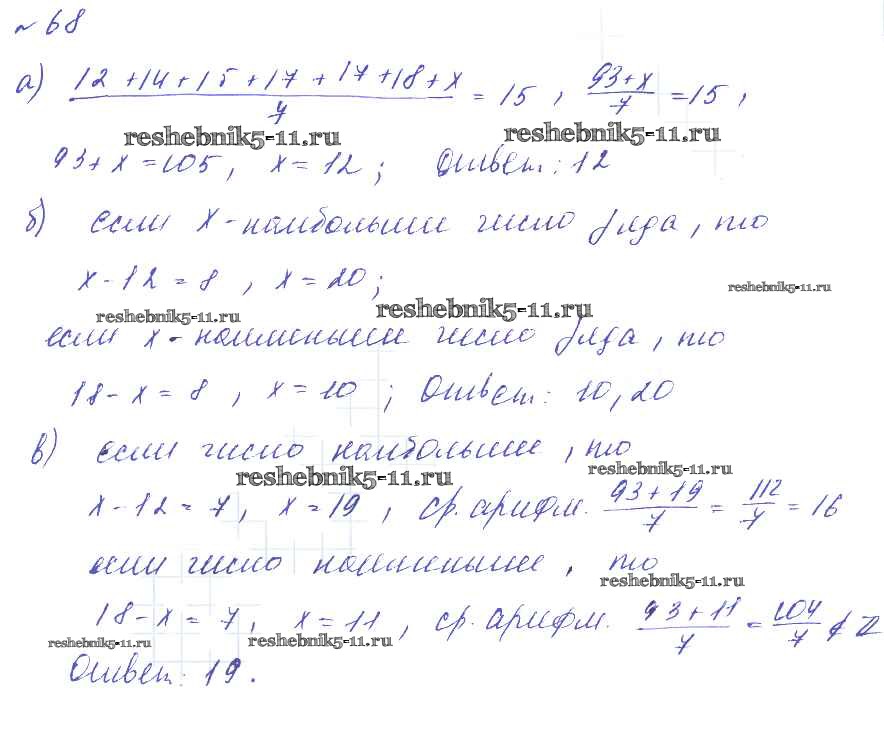 № 68
а) 12 + 14 + 15 + 17 + 17 + 18 + x / 7 = 15 , 93 + x / 7 = 15 ,
reshebnik5-11.ru reshebnik5-11.ru
93 + x = 105 , x = 12 ; Ответ : 12
б) если x - наибольшее число ряда , то
x - 12 = 8 , x = 20 ; reshebnik5-11.ru
reshebnik5-11.ru reshebnik5-11.ru
если x - наименьшее число ряда , то
18 - x = 8 , x = 10 ; Ответ : 10, 20
в) если число наибольшее , то
reshebnik5-11.ru reshebnik5-11.ru
x - 12 = 7 , x = 19 , ср. арифм. 93 + 19 / 7 = 112 / 7 = 16
если число наименьшее , то
reshebnik5-11.ru
18 - x = 7 , x = 11 , ср. арифм. 93 + 11 / 7 = 104 / 7 ∉ Z
reshebnik5-11.ru reshebnik5-11.ru
Ответ : 19 .